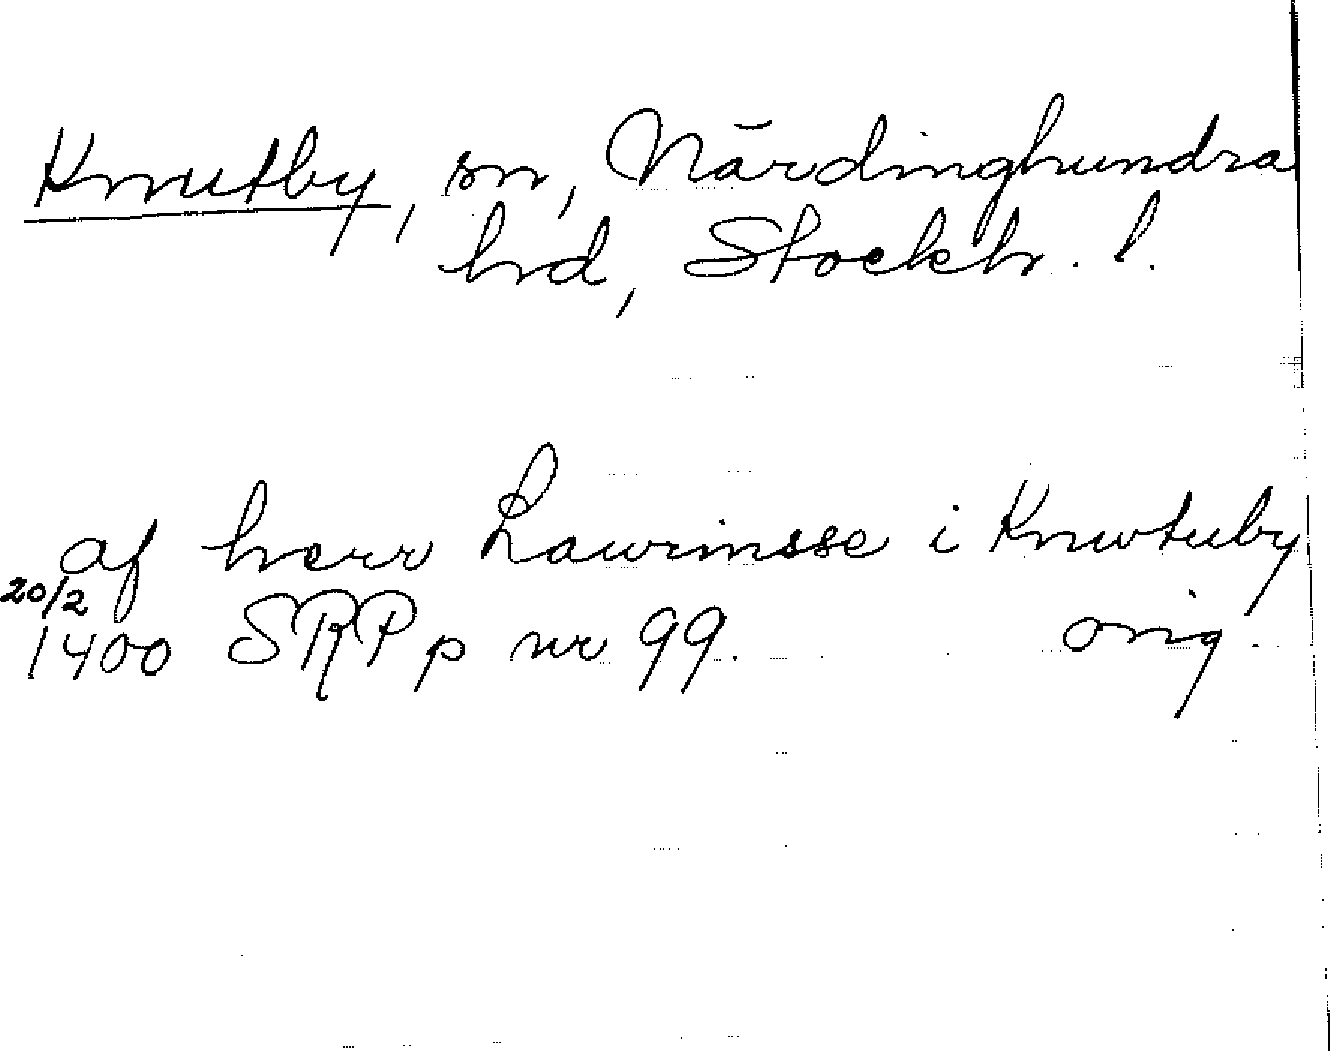 Knutby, sn, Närdinghundra
hrd, Stockh. l.
af herr Lawrinsse i Knwtuby
20/2
1400 SRPp nr 99. orig.